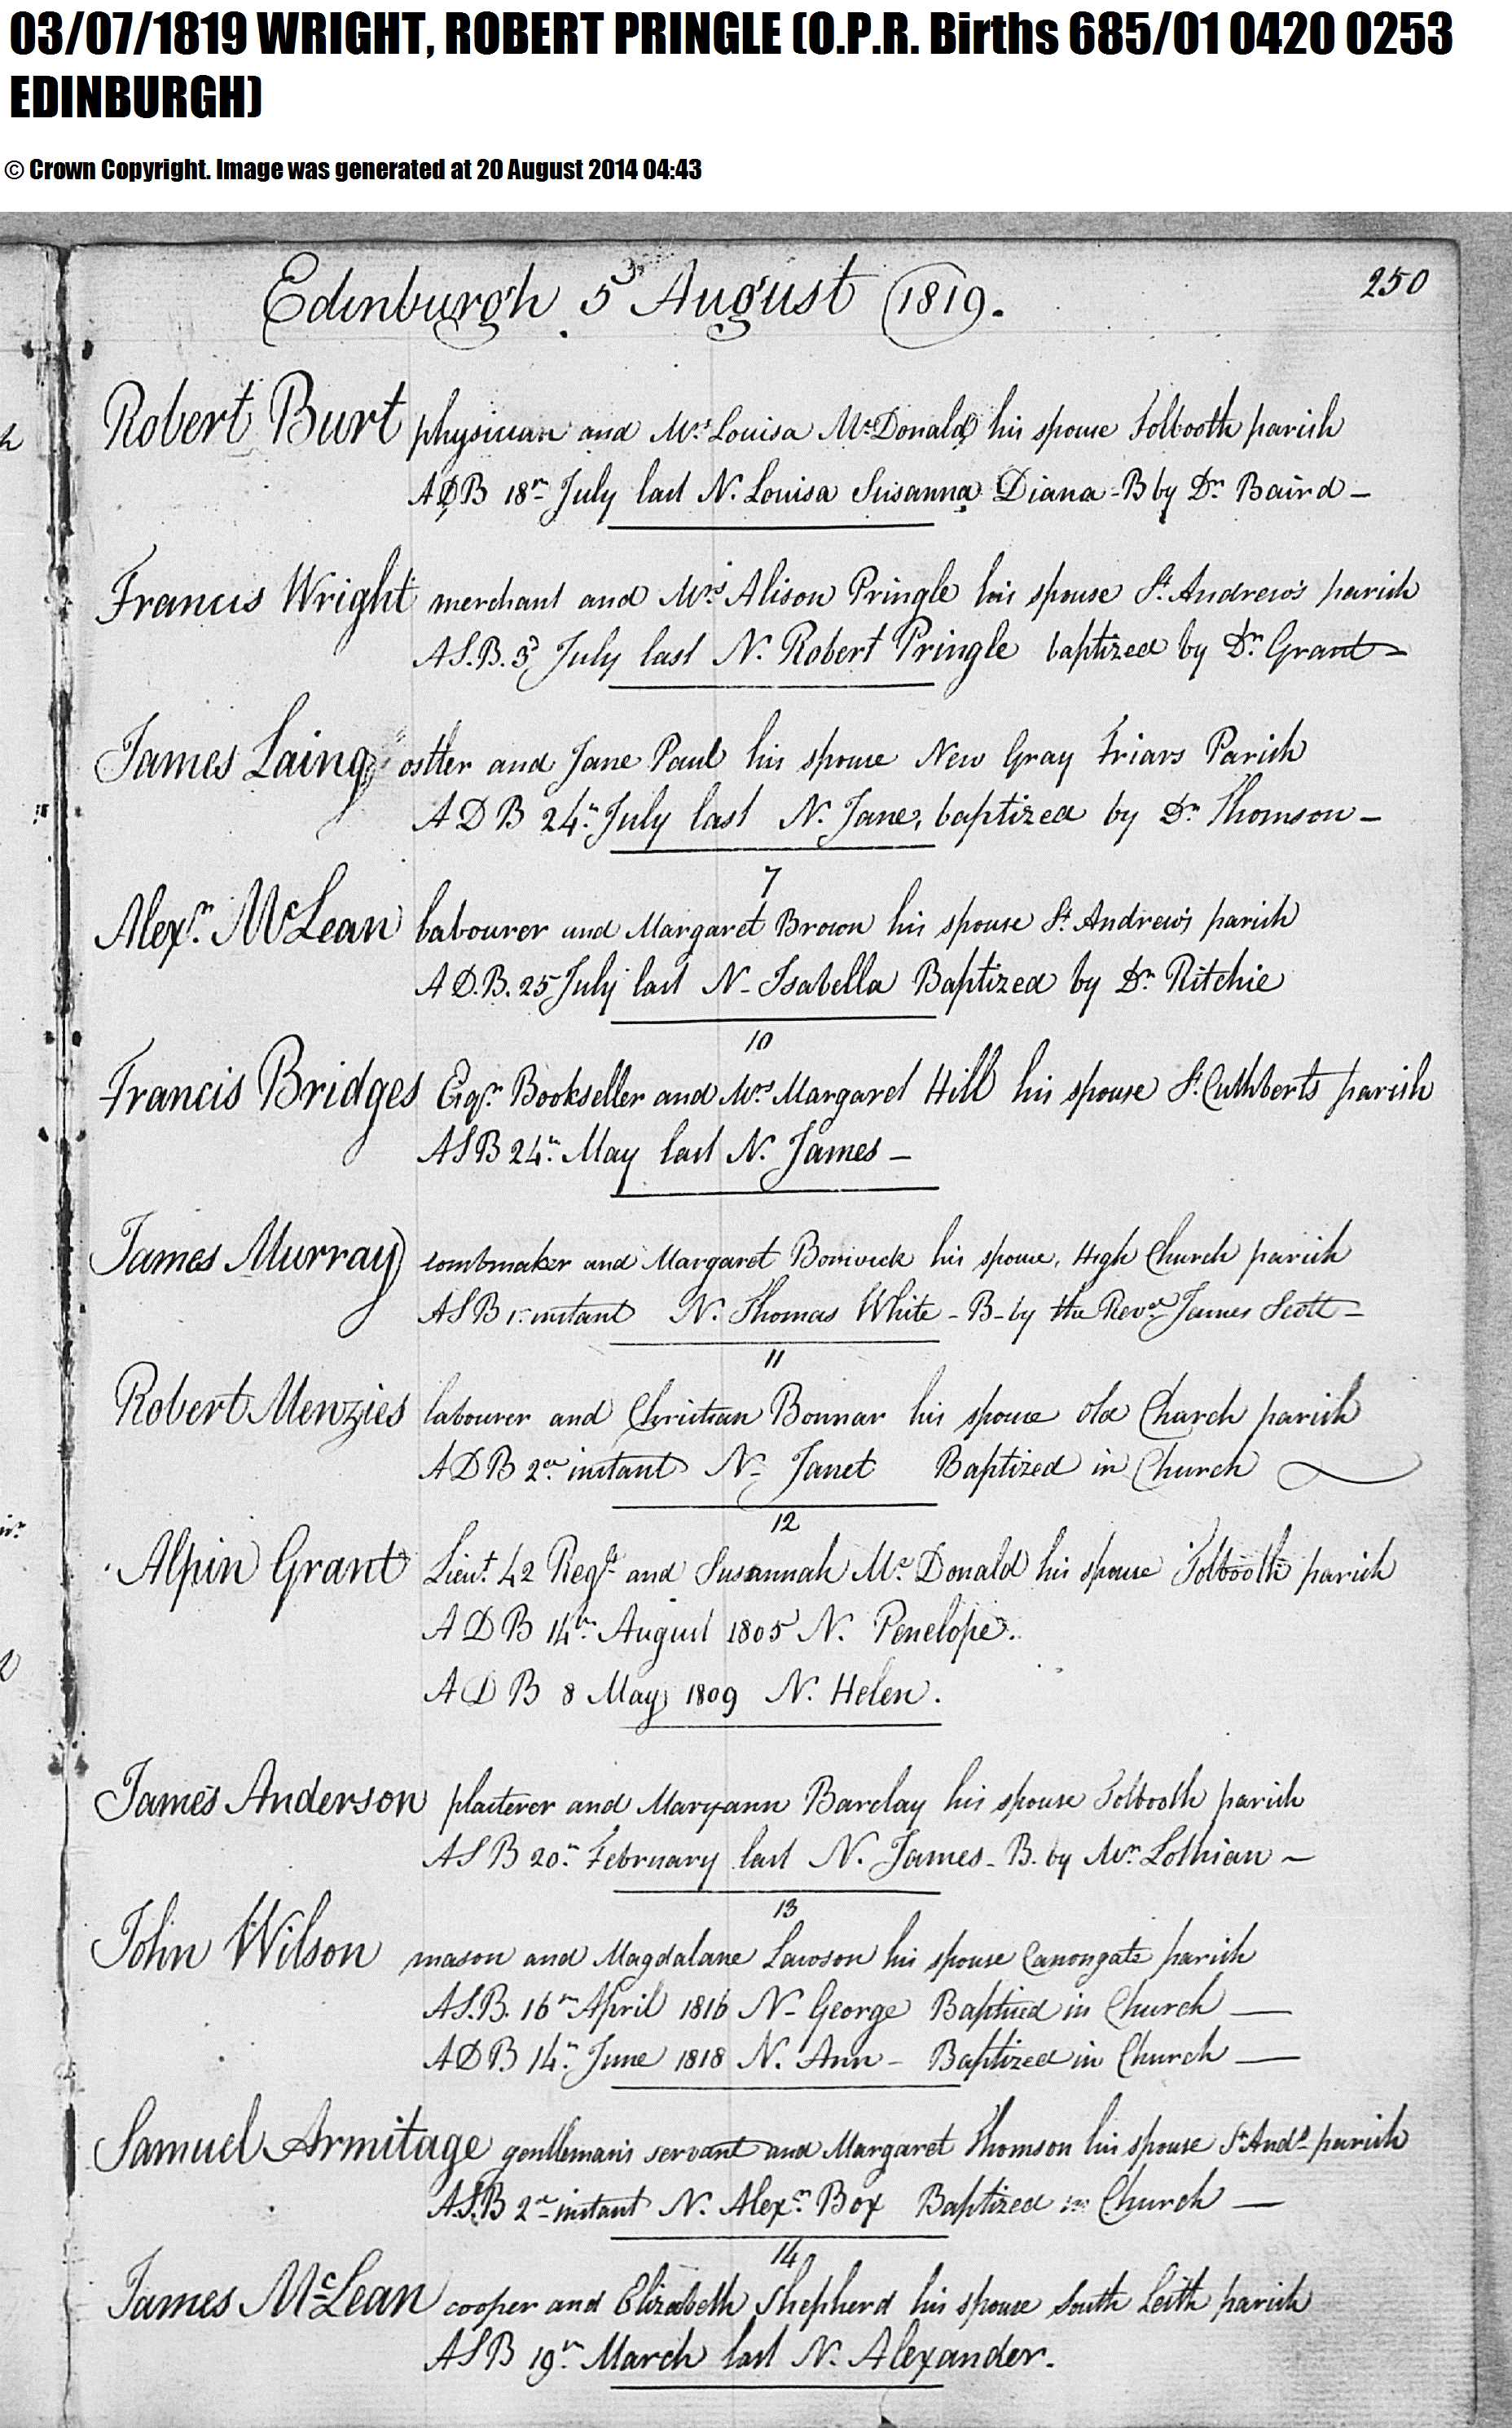 03/07/1819 WRIGHT, ROBERT PRINGLE (O.P.R. Births 685/01 0420 0253
EDINBURGH)
© Crown Copyright. Image was generated at 20 August 2014 04:43
250
Edinburgh 5 August 1819.
Robert Burt physician and Mrs Louisa McDonald his spouse Tolbooth parish
A D B 18th July last N. Louisa Susanna Diana - B by Dr Baird -
Francis Wright merchant and Mrs Alison Pringle his spouse St Andrew's parish
A S. B. 3d July last N. Robert Pringle baptized by Dr Grant -
James Laing ostler and Jane Paul his spouse New Gray Friars Parish
A D B 24th July last N. Jane, baptized by Dr Thomson -
7
Alexr McLean labourer and Margaret Brown his spouse St Andrew's parish
A D. B. 25 July last N - Isabella Baptized by Dr Ritchie
10
Francis Bridges Esqr Bookseller and Mrs Margaret Hill his spouse St Cuthberts parish
A S B 24th May last N. James -
James Murray combmaker and Margaret Borwick his spouse, High Church parish
A S B 1st instant N. Thomas White - B - by the Revd James Scott -
11
Robert Menzies labourer and Christian Bonnar his spouse old Church parish
A D B 2d instant N - Janet Baptized in Church
12
Alpin Grant Lieut. 42 Regt and Susannah Mc Donald his spouse Tolbooth parish
A D B 14th August 1805 N. Penelope.
A D B 8 May 1809 N. Helen.
James Anderson plaiterer and Maryann Barclay his spouse Tolbooth parish
A S B 20th February last N. James - B. by Mr Lothian -
13
John Wilson mason and Magdalane Lawson his spouse Canongate parish
A S. B. 16th April 1816 N - George Baptized in Church -
A D B. 14th June 1818 N. Ann - Baptized in Church -
Samuel Armitage gentleman's servant and Margaret Thomson his spouse St Andws parish
A. S. B 2d instant N. Alexr Box Baptized in Church -
14
James McLean cooper and Elizabeth Shepherd his spouse South Leith parish
A S B 19th March last N. Alexander.